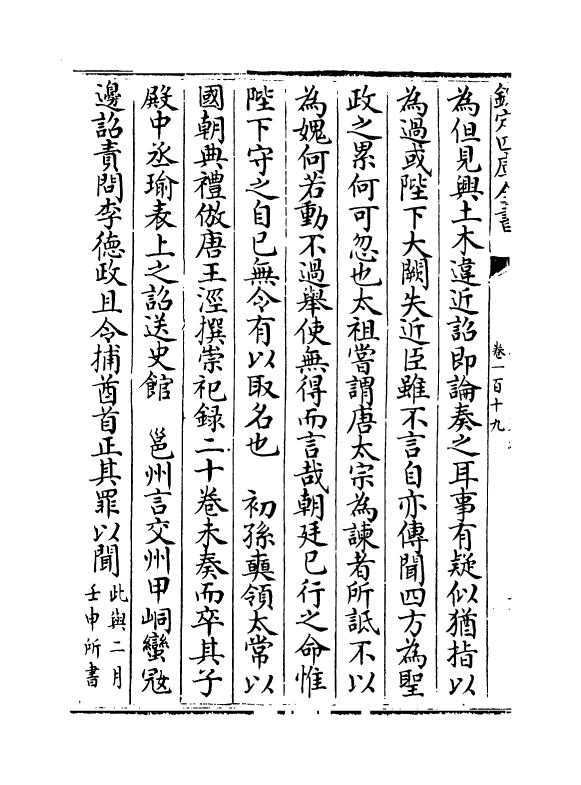 欽定四庫全書
卷一百十九
為但見興土木違近詔即論奏之耳事有疑似猶指以
為過或陛下大闕失近臣雖不言自亦傳聞四方為聖
政之累何可忽也太祖嘗謂唐太宗為諫者所詆不以
為媿何若動不過舉使無得而言哉朝廷已行之命惟
陛下守之自已無令有以取名也　初孫奭領太常以
國朝典禮倣唐王涇撰崇祀録二十卷未奏而卒其子
殿中丞瑜表上之詔送史館　邕州言交州甲峒蠻冦
邊詔責問李德政且令捕酋首正其罪以聞
此與二月
壬申所書